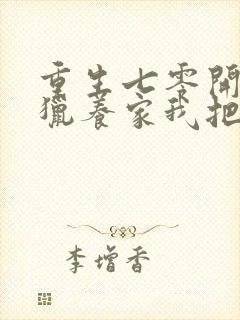 重生七零開
獵養家我把
李增香